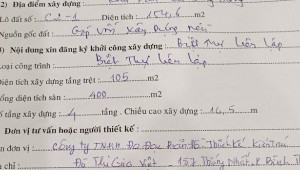 2) Địa điểm xây dựng :
Lô đất số : C2-1 Diện tích : 154,6 m2
Nguồn gốc đất : Góp Vốn Xây Dựng
3) Nội dung xin đăng ký khởi công xây dựng : Biệt Thự liên lập
Loại công trình : Biệt Thự liên lập
Diện tích xây dựng tầng trệt : 105 m2
Tổng diện tích sàn : 400 m2
Số tầng xây dựng : 4 tầng . Chiều cao xây dựng : 14,5 m
Đơn vị tư vấn hoặc người thiết kế :
ên đơn vị : Công Ty TNHH Đo Đạc Thiết Kế Kiến Trúc
Đô Thị Gia Việt
a chỉ : 157 Thống Nhất, P Bình T